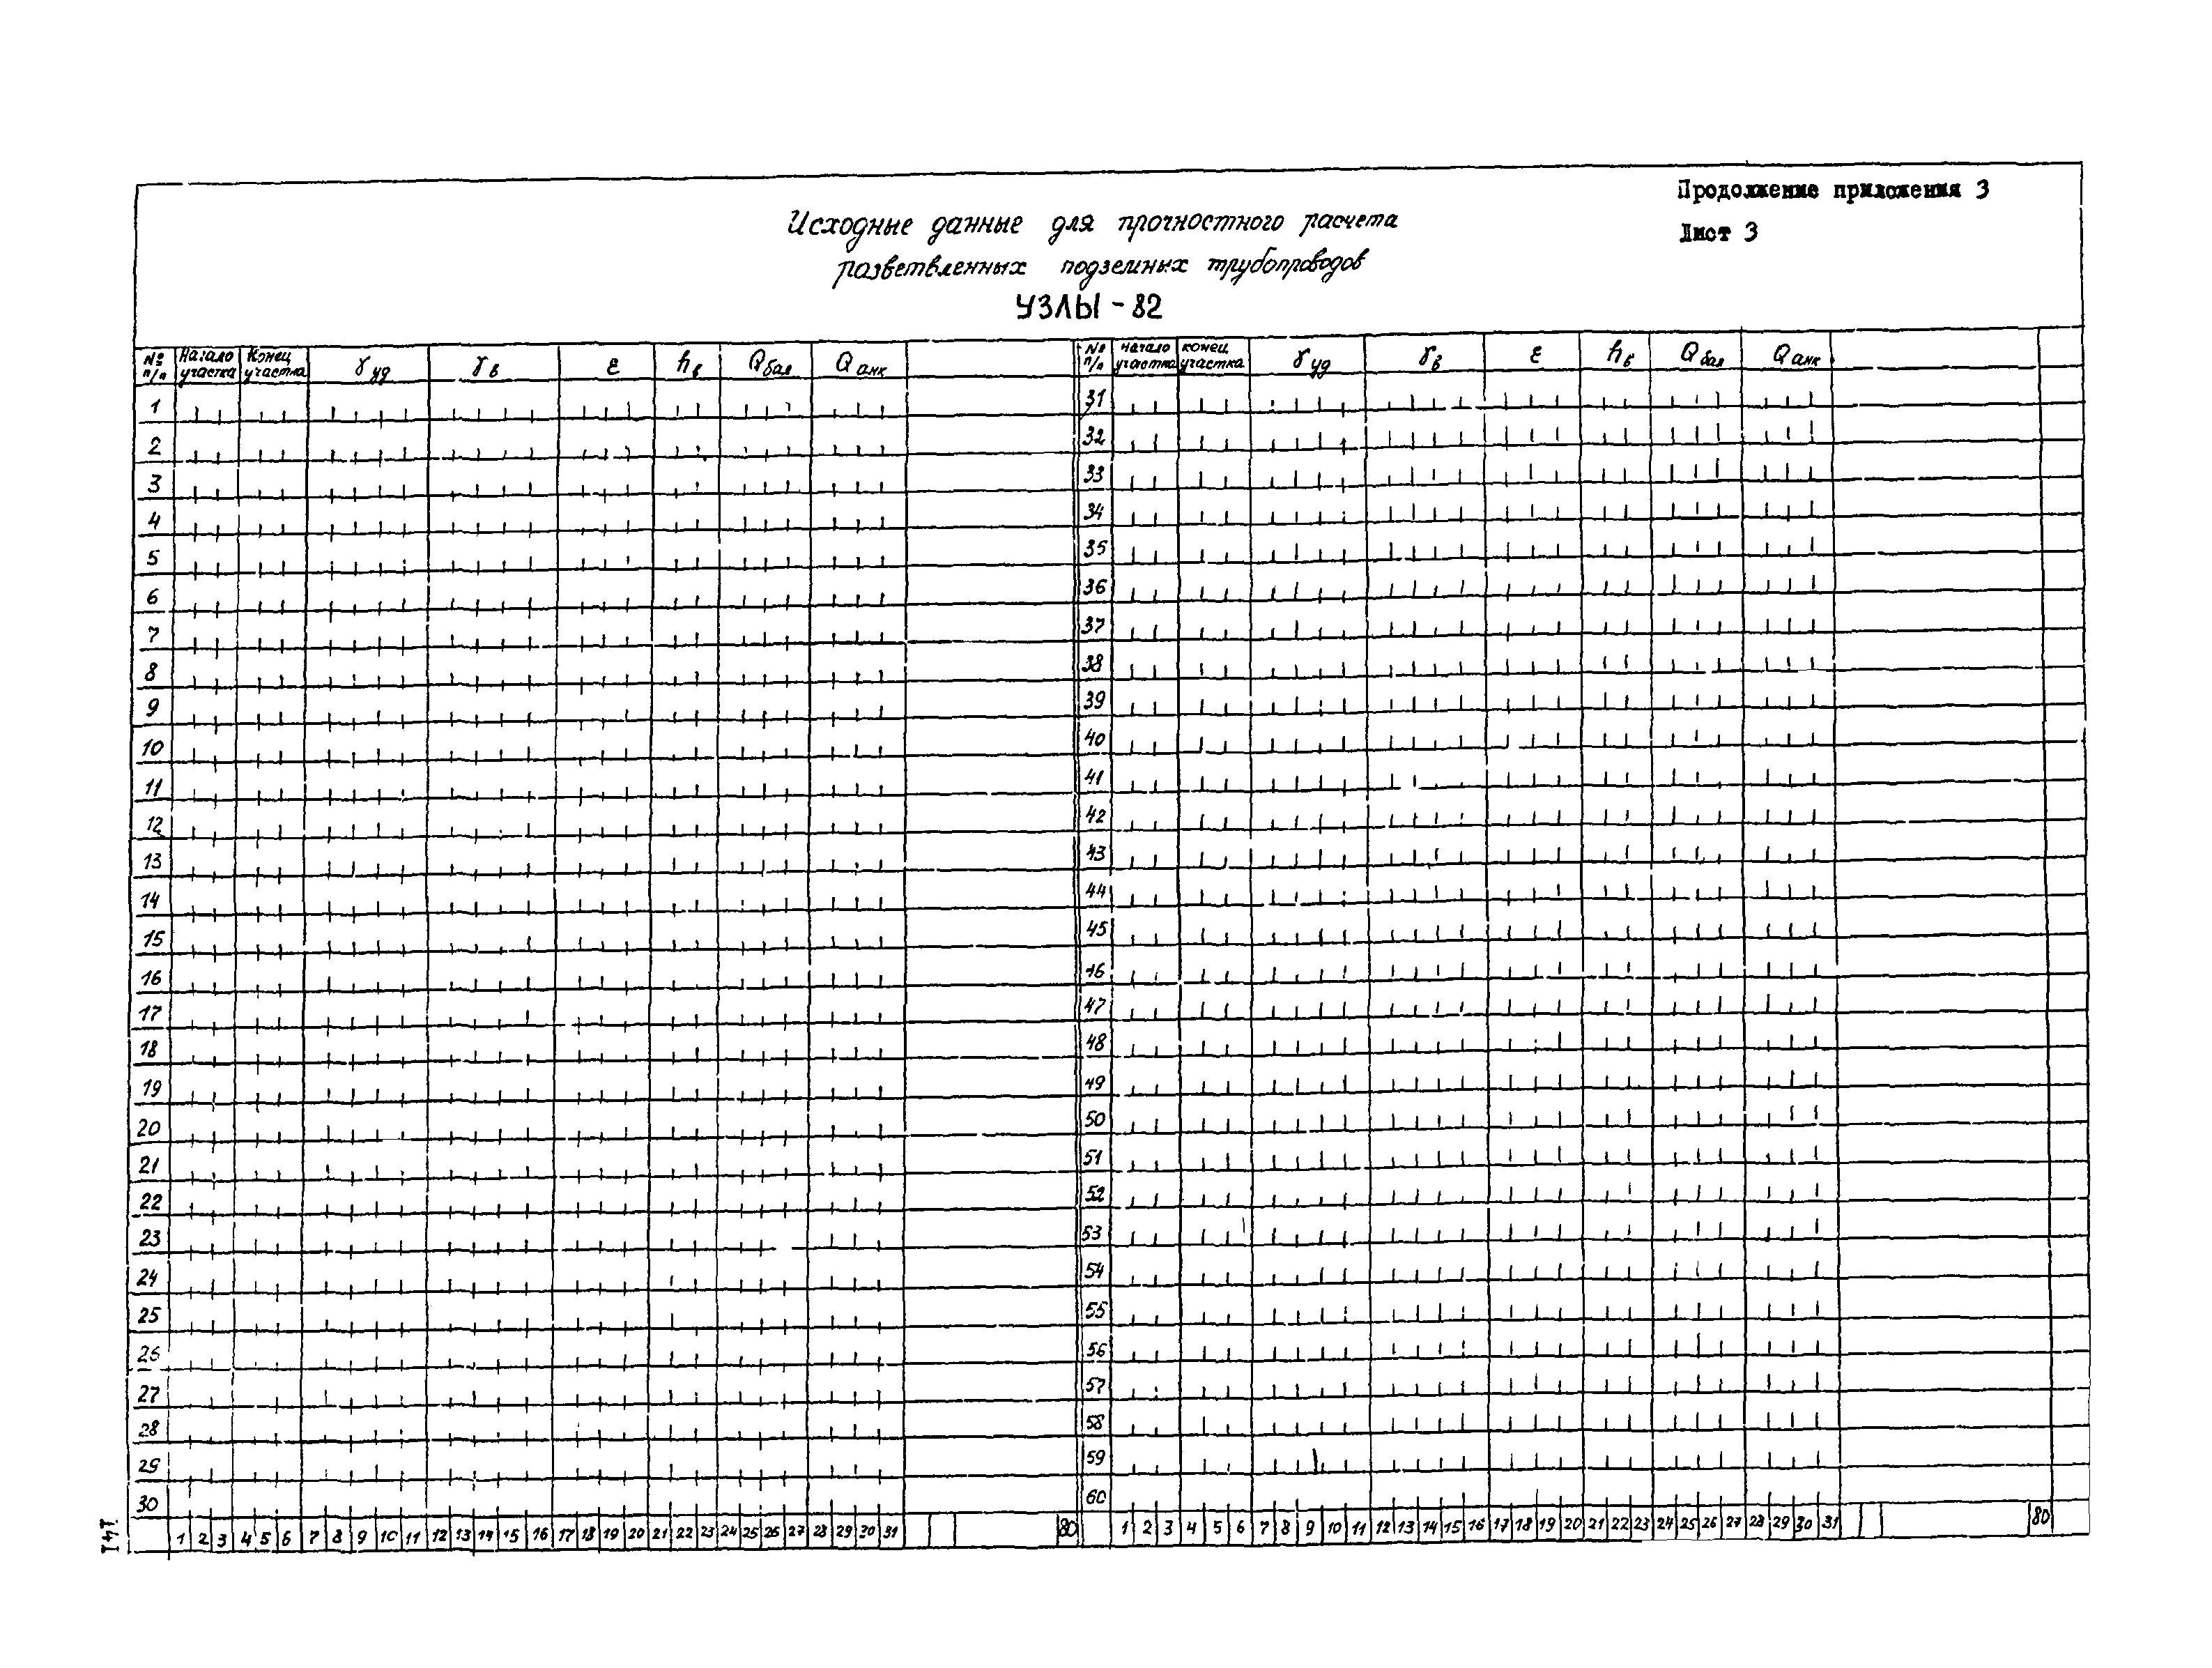 Продолжение приложения 3
Лист 3
Исходные данные для прочностного расчета
разветвленных подземных трубопроводов
УЗЛЫ - 82
№ п/п Начало участка Конец участка γуд γв ε hв Qбал Qанк № п/п начало участка конец участка γуд γв ε hв Qбал Qанк
1 31
2 32
3 33
4 34
5 35
6 36
7 37
8 38
9 39
10 40
11 41
12 42
13 43
14 44
15 45
16 46
17 47
18 48
19 49
20 50
21 51
22 52
23 53
24 54
25 55
26 56
27 57
28 58
29 59
30 60
1 2 3 4 5 6 7 8 9 10 11 12 13 14 15 16 17 18 19 20 21 22 23 24 25 26 27 28 29 30 31 80 1 2 3 4 5 6 7 8 9 10 11 12 13 14 15 16 17 18 19 20 21 22 23 24 25 26 27 28 29 30 31 80